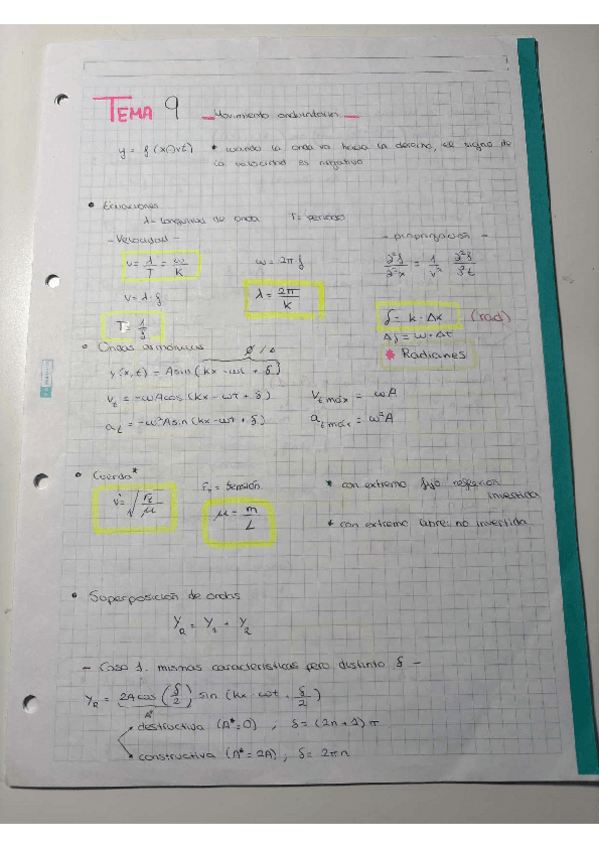 TEMA 9 — Movimiento ondulatorio —
y = f (x()vt) * cuando la onda va hacia la derecha, el signo de
la velocidad es negativo
• Ecuaciones
λ = longitud de onda T = periodo
- Velocidad -
v = λ/T = ω/K
v = λ · f
T = 1/f
ω = 2π f
λ = 2π/k
- propagación -
∂²f/∂²x = 1/v² ∂²f/∂²t
δ = k · Δx (rad)
Δδ = ω · Δt
* Radianes
• Ondas armónicas
y (x, t) = A sin (kx - ωt + δ)
v_t = -ωA cos (kx - ωt + δ)
a_t = -ω²A sin (kx - ωt + δ)
v_t máx = ωA
a_t máx = ω²A
• Cuerda*
v = √(F_t/μ)
F_t = tensión
μ = m/L
* con extremo fijo reflexión
invertida
* con extremo libre: no invertida
• Superposición de ondas
Y_R = Y_1 + Y_2
- Caso 1. mismas características pero distinto δ -
Y_R = 2A cos (δ/2) sin (kx - ωt + δ/2)
A*
destructiva (A* = 0) , δ = (2n + 1) π
constructiva (A* = 2A) , δ = 2πn